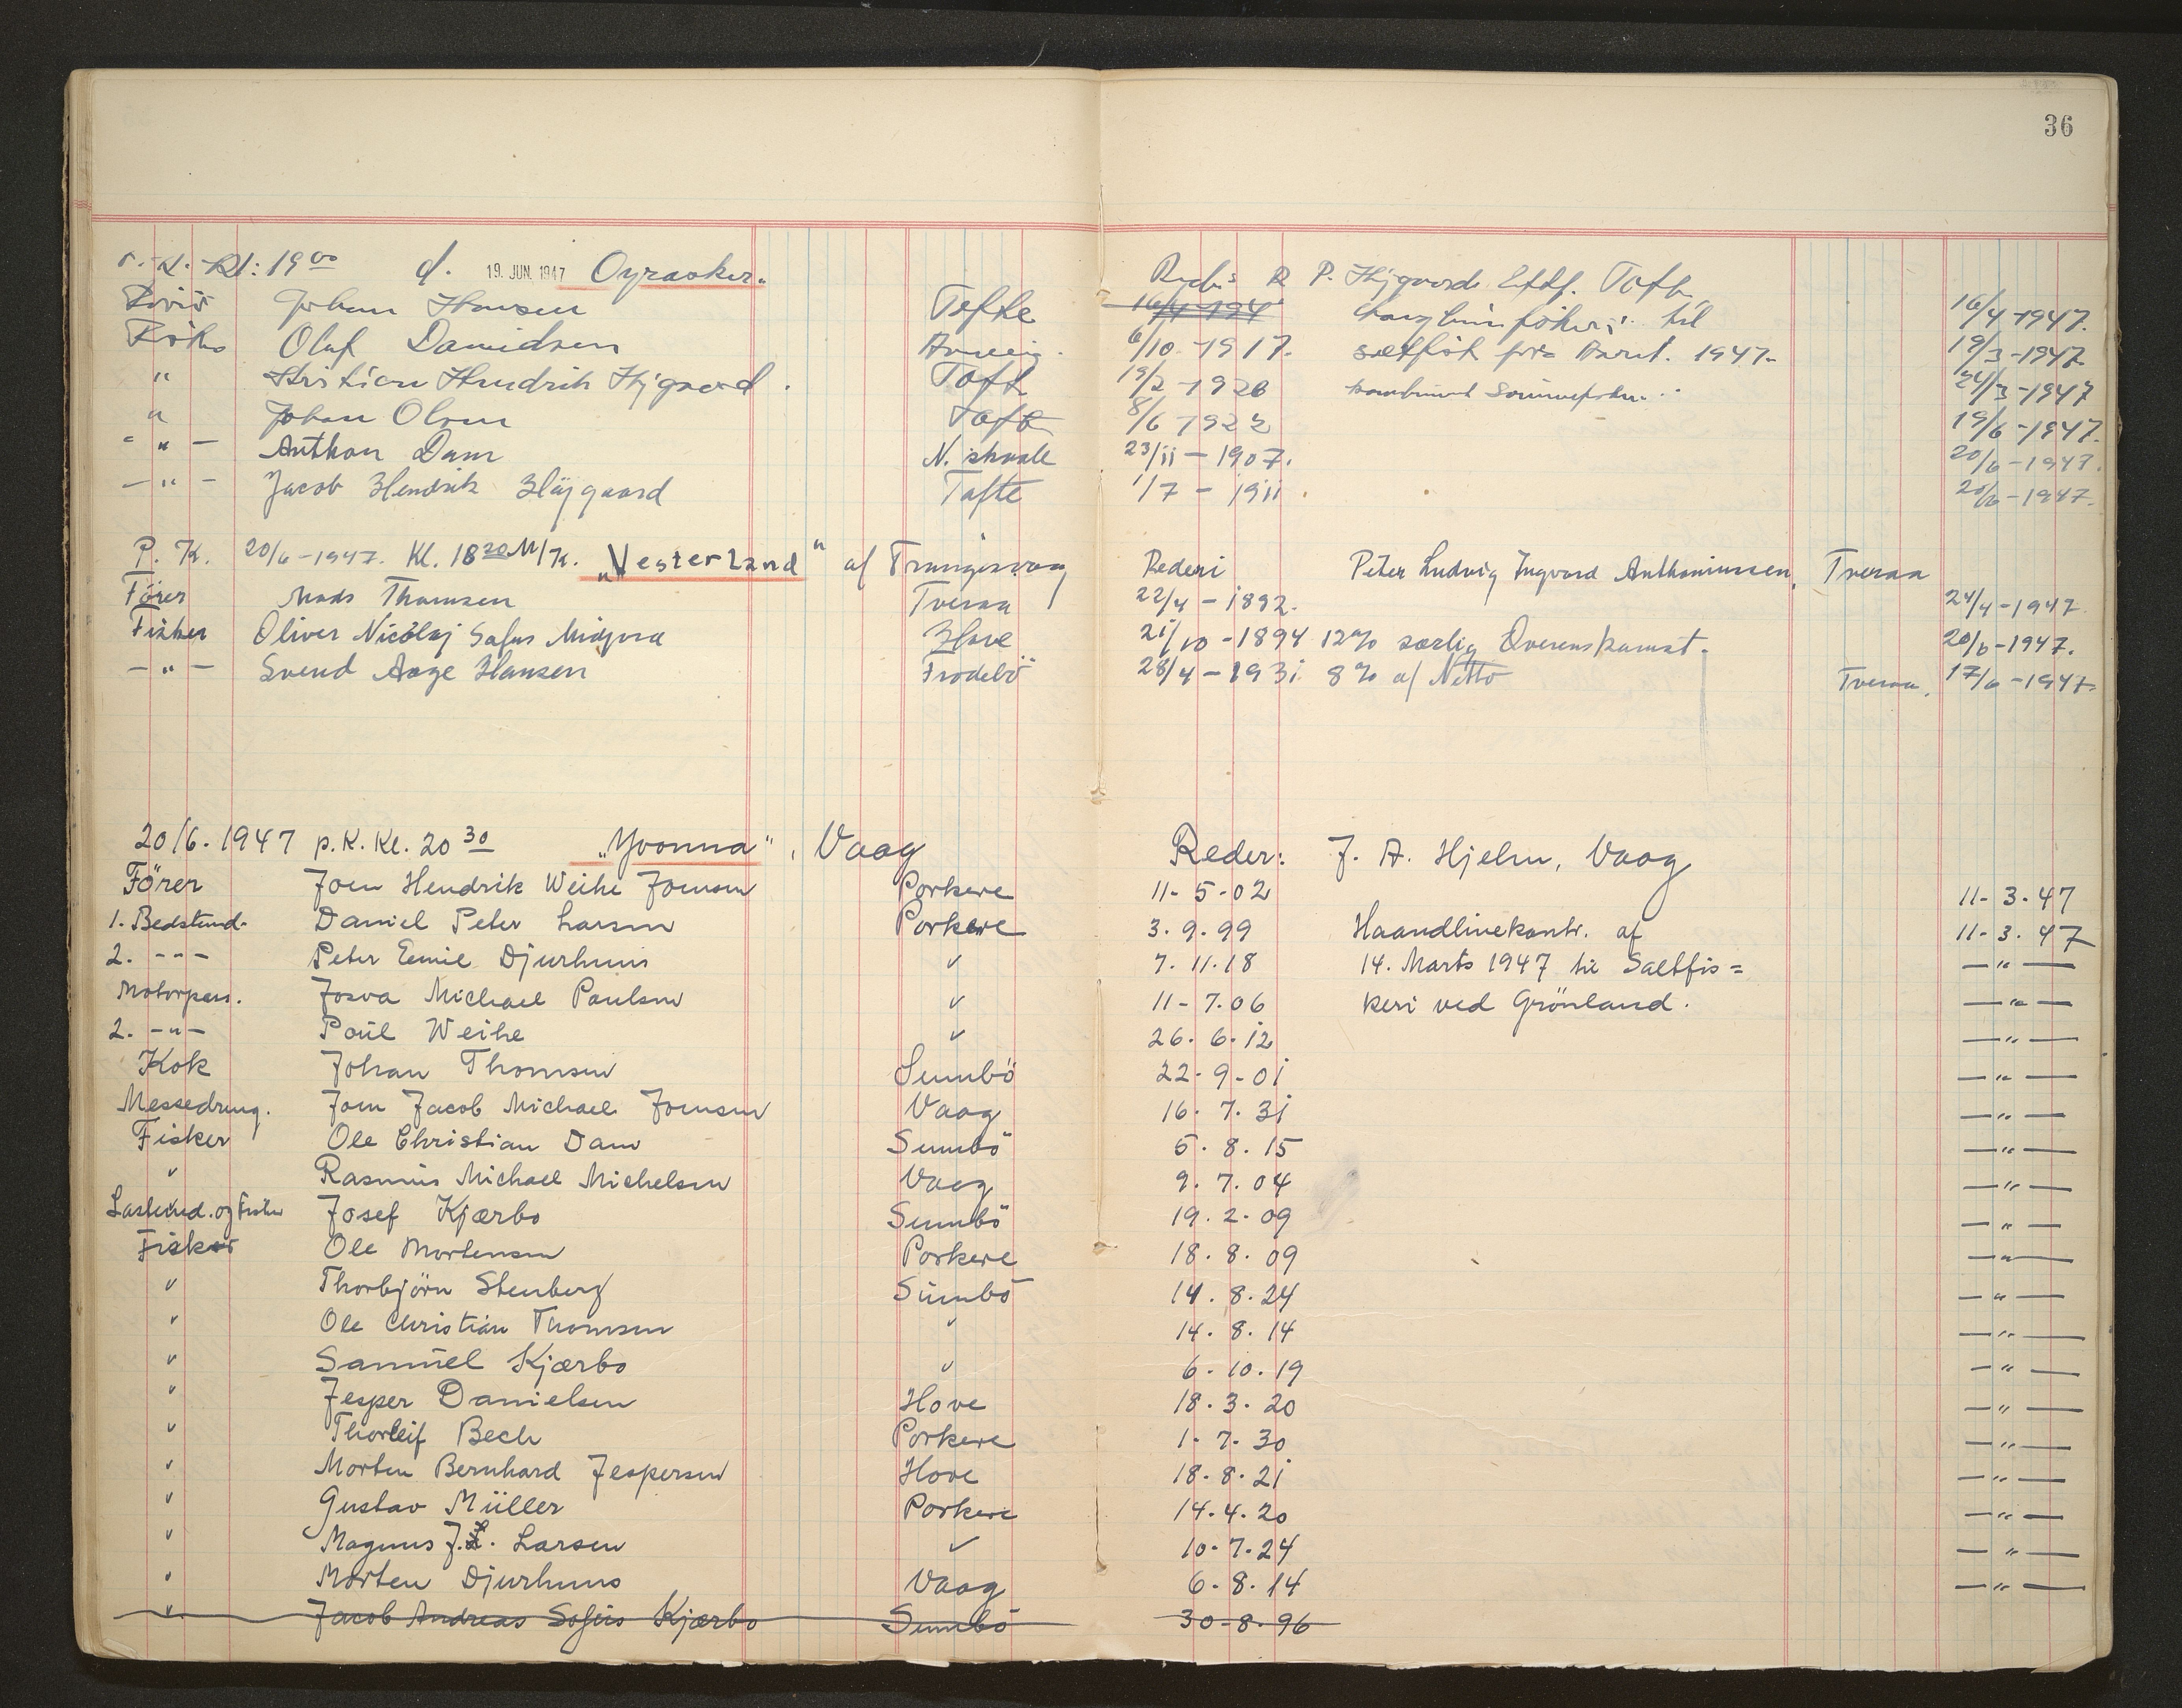 36
Kl: 19 00 d. 19. JUN. 1947 Oyrasker.
P. Højgaards Eftf. Tofte
Johan Hansen Tofte 16/4-1947.
Olaf Davidsen 6/10-1917. 19/3-1947
" Kristian Hendrik Højgaard. Tofte 19/2-1926 24/3-1947
" Johan Olsen Tofte 8/6 1922 19/6-1947.
- " - Anthon Dam N. skaale 23/11-1907. 20/6-1947.
- " - Jacob Hendrik Højgaard Tofte 1/7-1911 20/6-1947.
P. K. 20/6-1947. Kl. 18 20 M/K. „Vesterland" af Trangisvaag Rederi Peter Ludvig Ingvard Anthoniussen, Tveraa
Förer Mads Thomsen Tveraa 22/4-1892. 24/4-1947
Fisker Oliver Nicolaj Sofus Midjord Hove 21/10-1894 12% særlig Overenskomst. 20/6-1947.
- " - Svend Aage Hansen Frodebö 28/4-1931 8% af Netto Tveraa. 17/6-1947
20/6.1947 p.K. Kl. 20 30 „Yvonna", Vaag Reder: J. A. Hjelm, Vaag
Förer Joen Hendrik Weihe Joensen Porkere 11-5-02 11-3.47
1. Bedstmd. Daniel Peter Larsen Porkere 3.9.99 Haandlinekontr. af 11-3.47
2. - - - Peter Emil Djurhuus " 7.11.18 14. Marts 1947 til Saltfis= — " —
Motorpass. Josva Michael Poulsen " 11-7.06 keri ved Grönland. — " —
2. - " - Poul Weihe " 26.6.12 — " —
Kok Johan Thomsen Sumbö 22-9-01 — " —
Messedreng. Joen Jacob Michael Joensen Vaag 16.7.31 — " —
Fisker Ole Christian Dam Sumbö 5.8.15 — " —
" Rasmus Michael Michelsen Vaag 9.7.04 — " —
Lastemd. og Fisker Josef Kjærbo Sumbö 19.2-09 — " —
Fisker Ole Mortensen Porkere 18.8.09 — " —
" Thorbjörn Stenberg Sumbö 14.8.24 — " —
" Ole Christian Thomsen " 14.8.14 — " —
" Samuel Kjærbo " 6.10.19 — " —
" Jesper Danielsen Hove 18.3.20 — " —
" Thorleif Bech Porkere 1.7.30 — " —
" Morten Bernhard Jespersen Hove 18.8.21 — " —
" Gustav Müller Porkere 14.4.20 — " —
" Magnus J. L. Larsen " 10.7.24 — " —
" Morten Djurhuus Vaag 6.8.14 — " —
" Jacob Andreas Sofus Kjærbo Sumbö 30-8-96